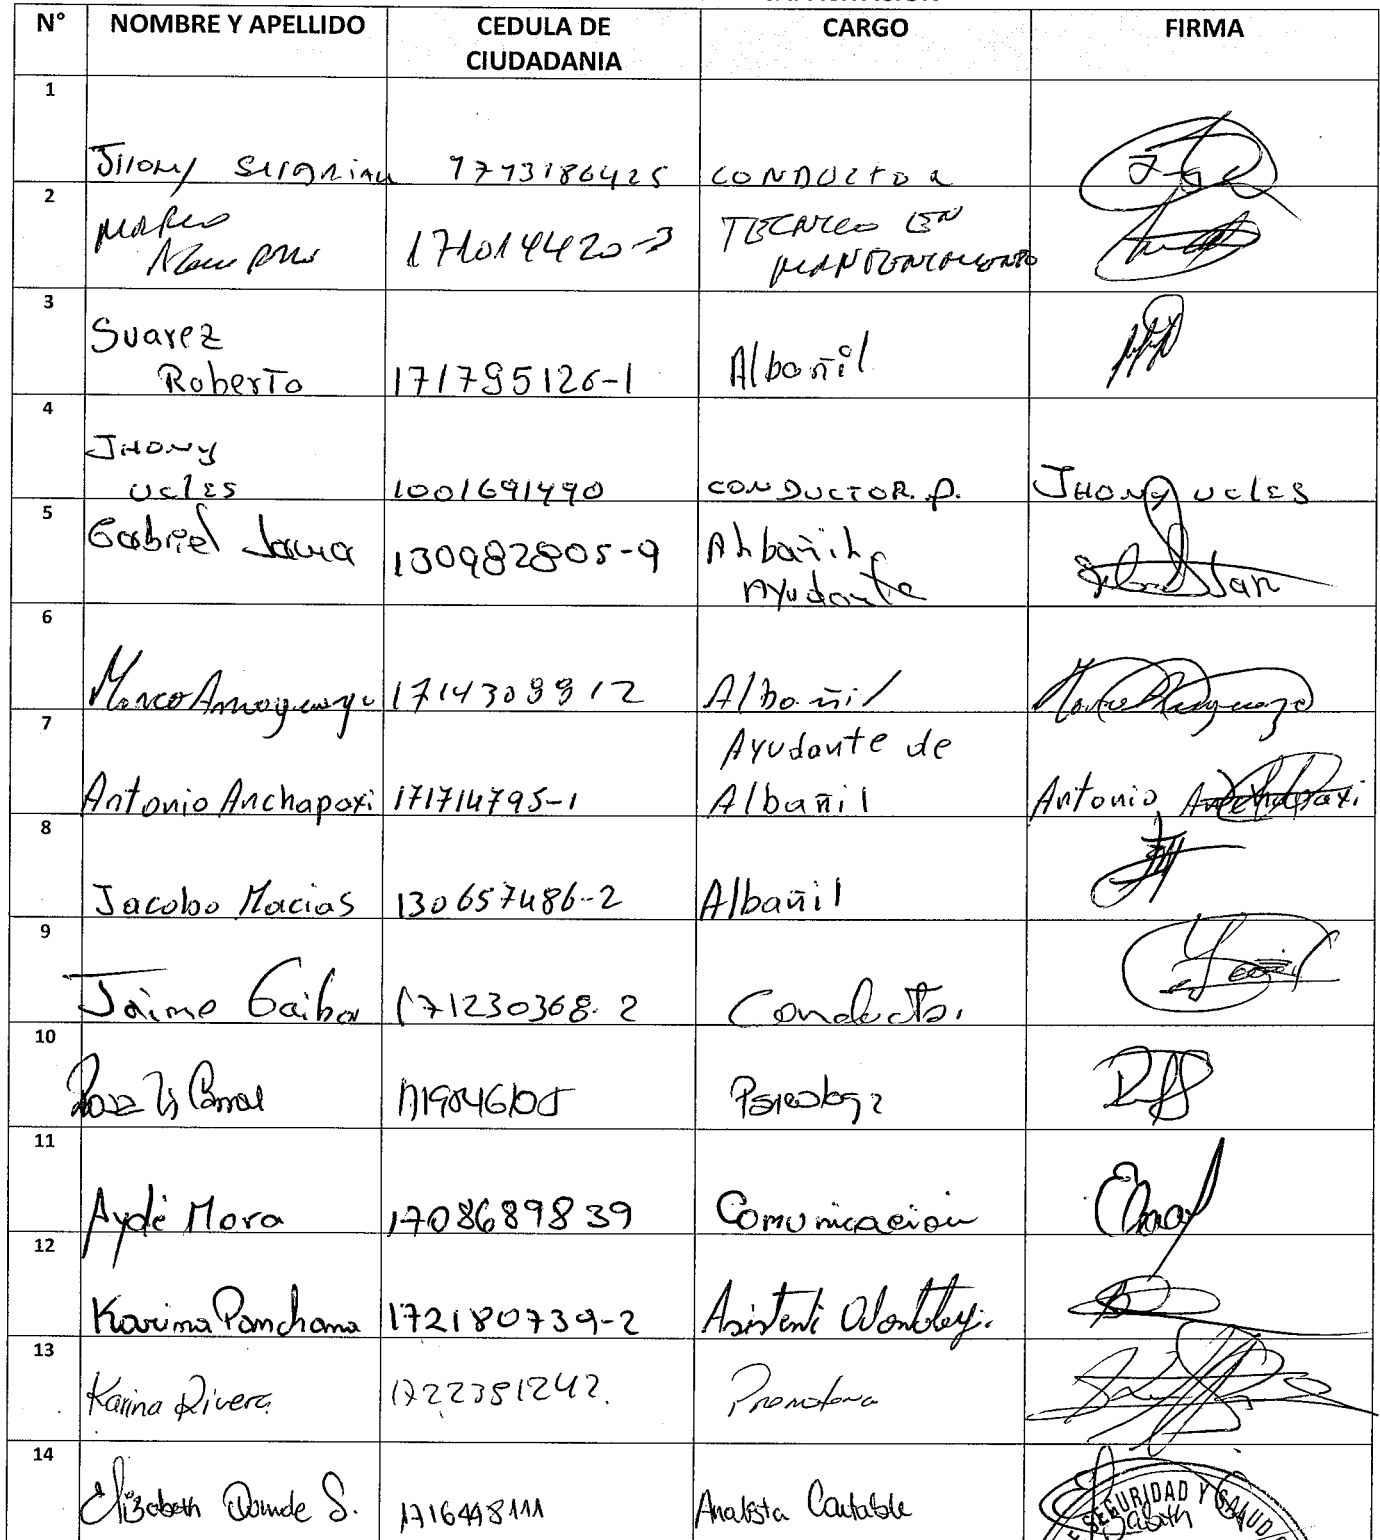 N° NOMBRE Y APELLIDO CEDULA DE CIUDADANIA CARGO FIRMA
1 Jhony 1713186425 CONDUCTOR
2 MARCO 171014420-3 TECNICO EN MANTENIMIENTO
3 Suarez Roberto 171795126-1 Albañil
4 JHONY UCLES 1001691490 CONDUCTOR.P. JHONY UCLES
5 Gabriel 130982805-9 Albañil Ayudante
6 Marco 1714309912 Albañil
7 Antonio Anchapaxi 171714795-1 Ayudante de Albañil Antonio Anchapaxi
8 Jacobo Macias 130657486-2 Albañil
9 Jaime Gaibor 171230368-2 Conductor
10 Psicologa
11 Aydé Mora 1708689839 Comunicacion
12 Karina Panchana 172180739-2 Asistente Odontolog.
13 Karina Rivera 1722381242. Promotora
14 Elizabeth S. 1716448111 Analista Contable
SEGURIDAD Y SALUD